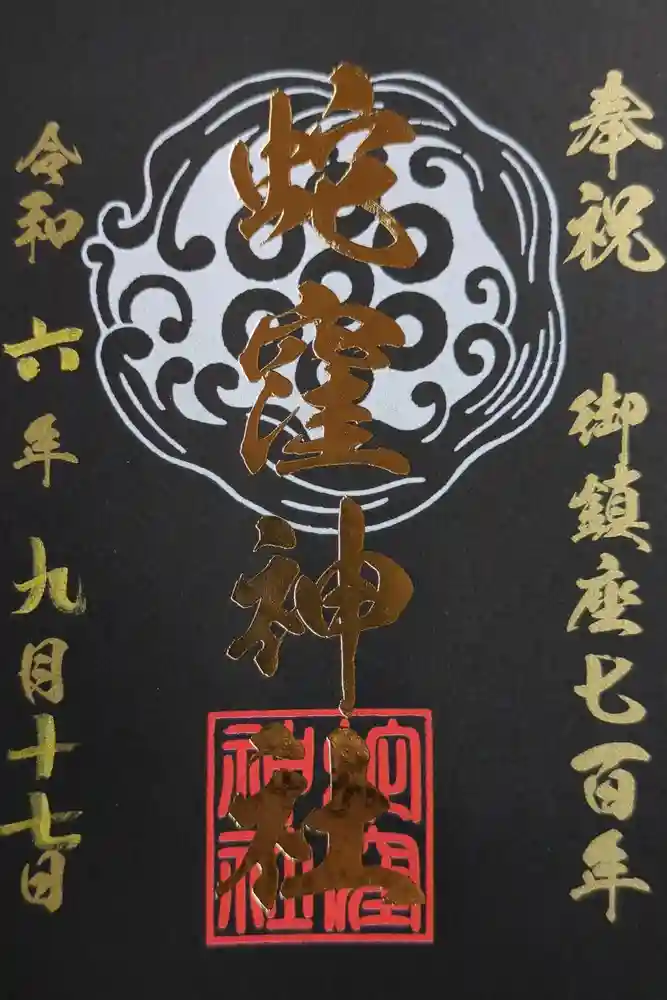 奉祝 御鎮座七百年
蛇窪神社
蛇窪神社
令和六年九月十七日